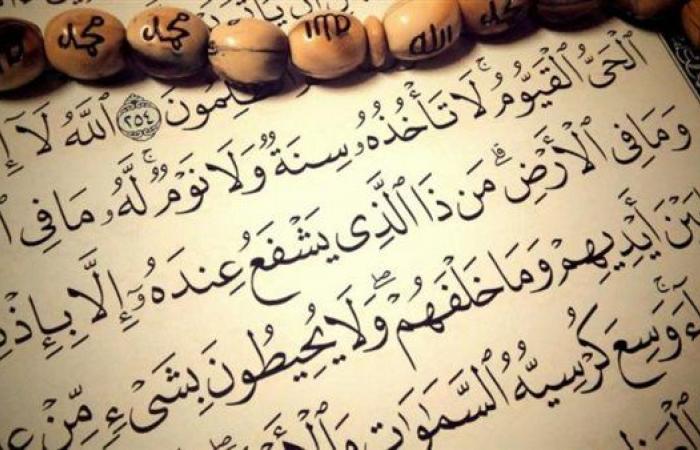 محمد محمد الله محمد
لِمُونَ ٢٥٤ ٱللَّهُ لَآ إِ
ٱلْحَىُّ ٱلْقَيُّومُ ۚ لَا تَأْخُذُهُۥ سِنَةٌ وَلَا نَوْمٌ ۚ لَّهُۥ مَا فِى
وَمَا فِى ٱلْأَرْضِ ۗ مَن ذَا ٱلَّذِى يَشْفَعُ عِندَهُۥٓ إِلَّا بِإِذْ
يْنَ أَيْدِيهِمْ وَمَا خَلْفَهُمْ ۖ وَلَا يُحِيطُونَ بِشَىْءٍ مِّنْ
ءَ ۚ وَسِعَ كُرْسِيُّهُ ٱلسَّمَٰوَٰتِ وَٱلْأَرْ